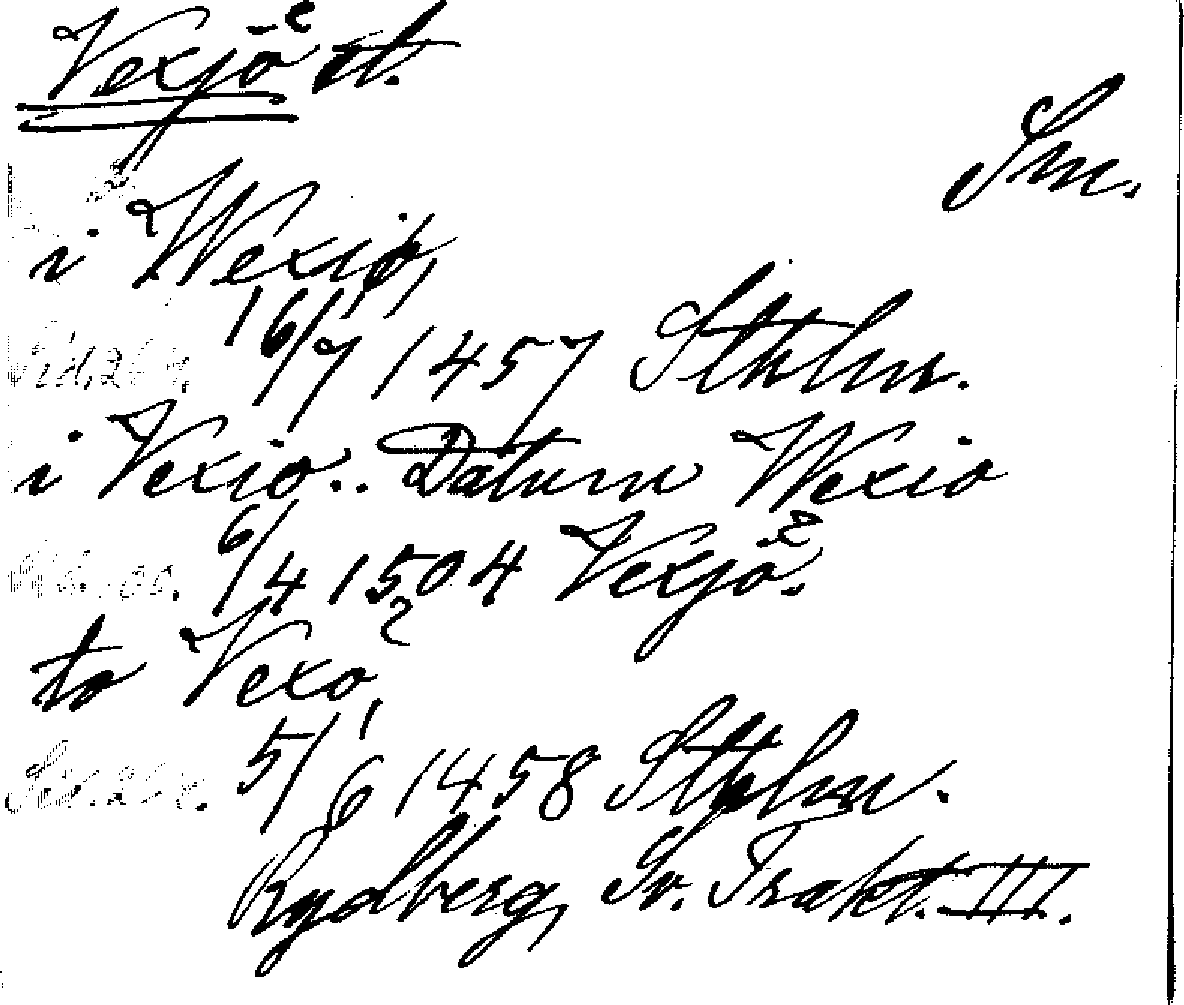 Vexjö st.
Sm.
i Wexiø,
16/7 1457 Sthlm.
i Vexio.. Datum Wexio
6/4 1504 Vexjö.
to Vexo,
5/6 1458 Sthlm.
Rydberg, Sv. Trakt. III.